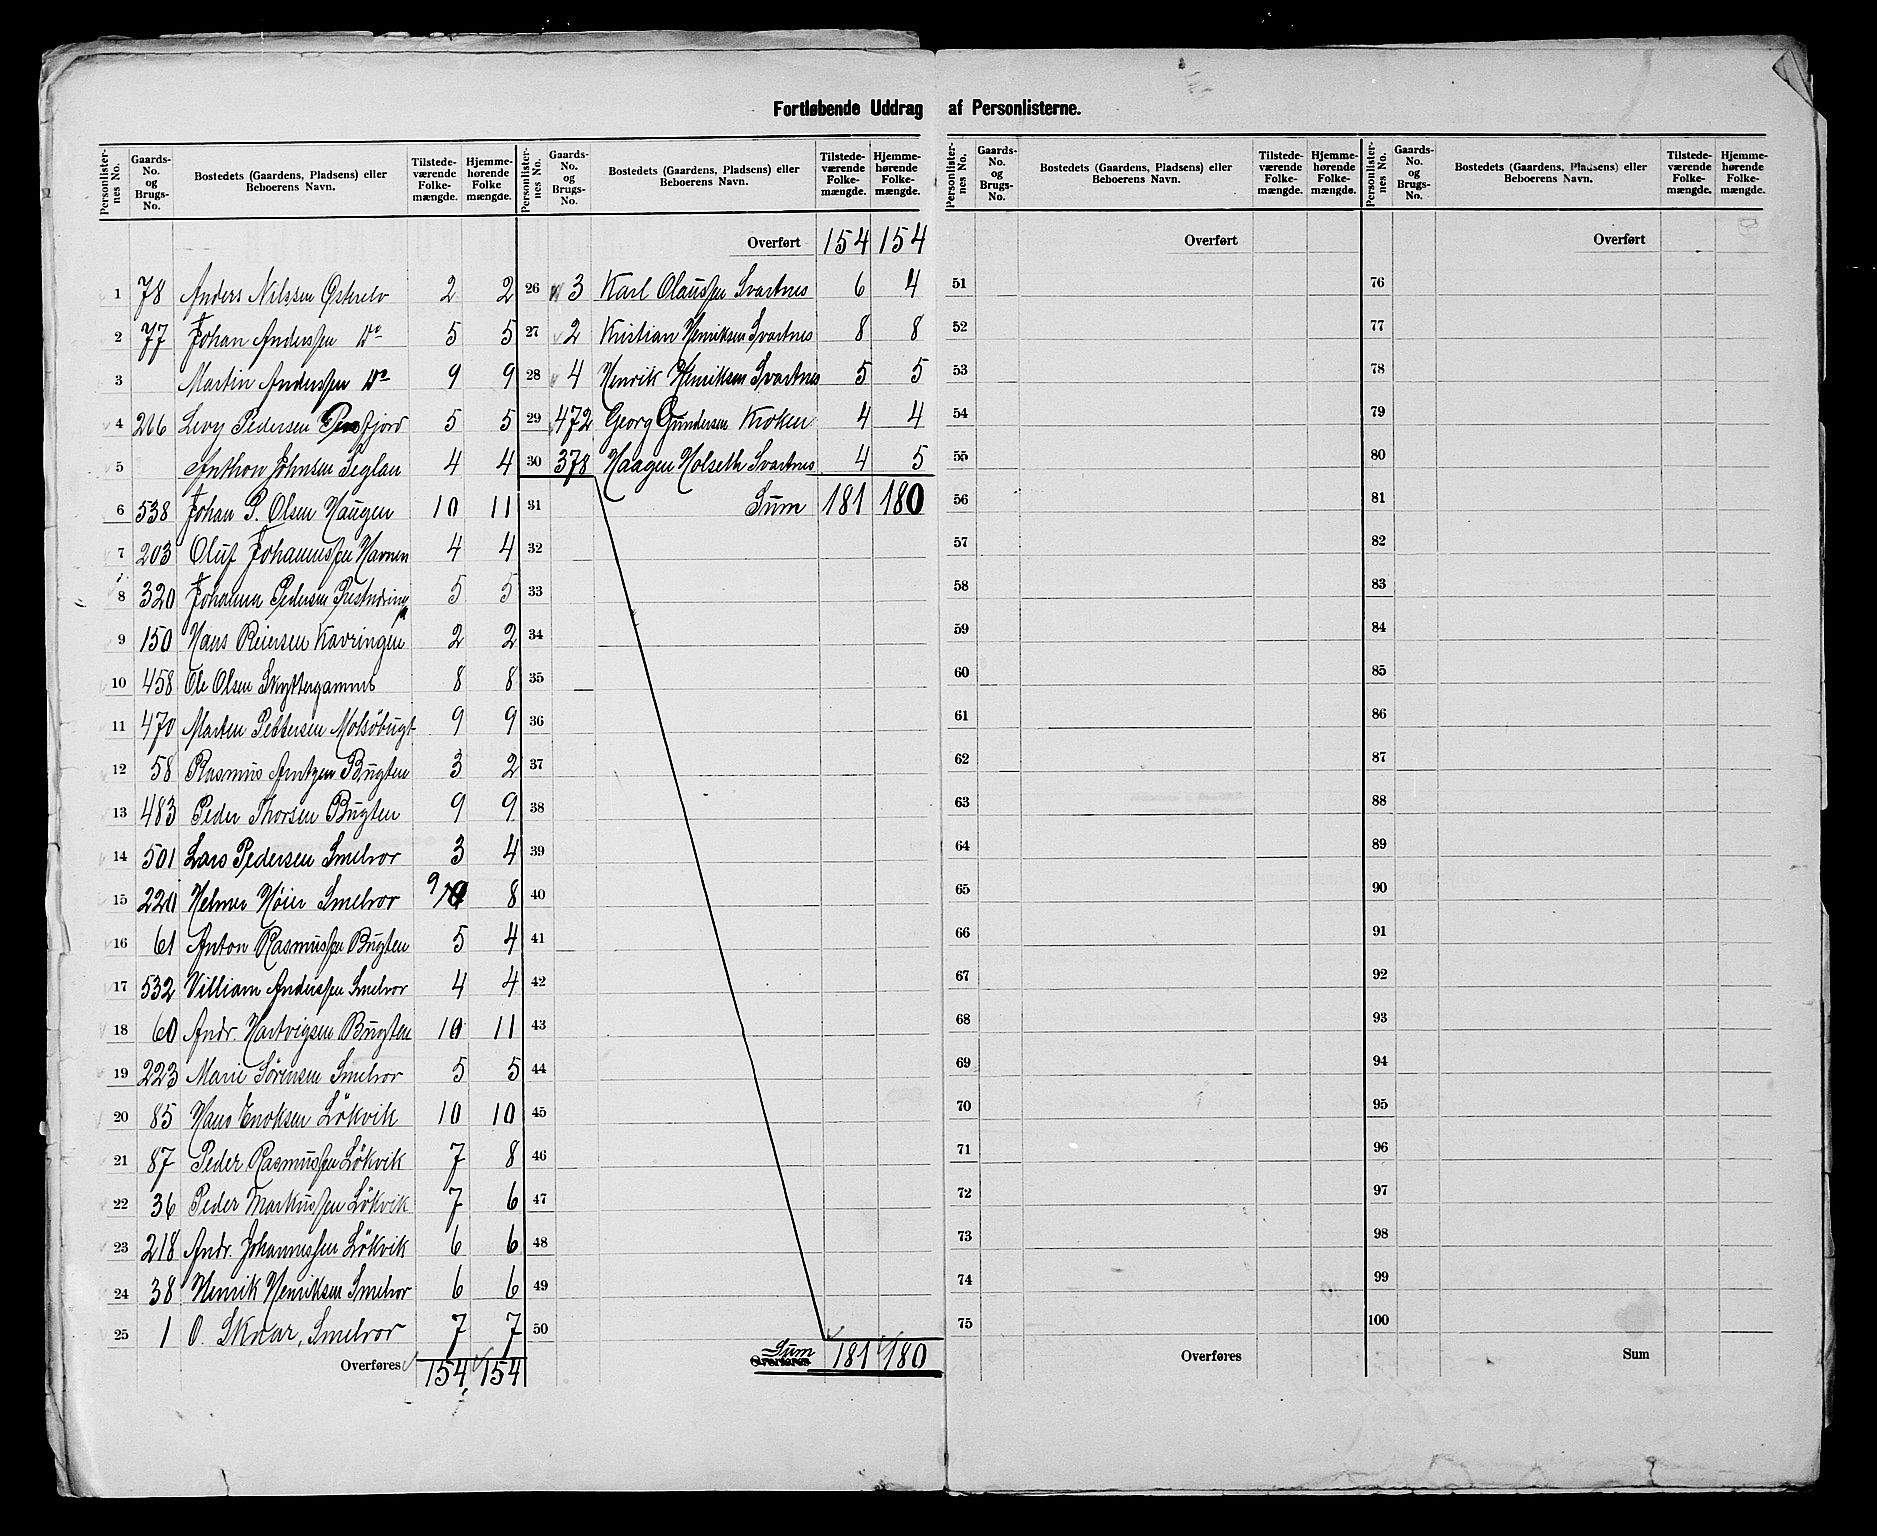 Fortløbende Uddrag af Personlisternes.
Personlister-nes No. Gaards-No. og Brugs-No. Bostedets (Gaardens, Pladsens) eller Beboerens Navn. Tilstede-værende Folke-mængde. Hjemme-hørende Folke mængde.
1 78 Anders Nilssen Østerelv 2 2
2 77 Johan Anderssen Do 5 5
3 Martin Anderssen Do 9 9
4 266 Levy Pedersen 5 5
5 Anthon Johnsen Seglan 4 4
6 538 Johan P. Olsen Haugen 10 11
7 203 Oluf Johannessen Havnen 4 4
8 320 Johanna Pedersen 5 5
9 150 Hans Reiersen Kavringen 2 2
10 458 Ole Olsen Skyttergammes 8 8
11 470 Marten Pettersen Molsöbugt 9 9
12 58 Rasmus Arntzen Bugten 3 2
13 483 Peder Thorsen Bugten 9 9
14 501 Lars Pedersen Smelror 3 4
15 220 Helmer Höier Smelror 9 8
16 61 Anton Rasmussen Bugten 5 4
17 532 Villiam Anderssen Smelror 4 4
18 60 Andr. Hartvigsen Bugten 10 11
19 223 Marie Sörensen Smelror 5 5
20 85 Hans Enoksen Lökvik 10 10
21 87 Peder Rasmussen Lökvik 7 8
22 36 Peder Markussen Lökvik 7 6
23 218 Andr. Johannessen Lökvik 6 6
24 38 Henrik Henriksen Smelror 6 6
25 1 O. Sknar, Smelror 7 7
Overføres 154 154
Personlister-nes No. Gaards-No. og Brugs-No. Bostedets (Gaardens, Pladsens) eller Beboerens Navn. Tilstede-værende Folke-mængde. Hjemme-hørende Folke-mængde.
Overført 154 154
26 3 Karl Olaussen Svartnes 6 4
27 2 Kristian Henriksen Svartnes 8 8
28 4 Henrik Henriksen Svartnes 5 5
29 472 Georg Gundersen Kroken 4 4
30 378 Haagen Holseth Svartnes 4 5
31 Sum 181 180
32
33
34
35
36
37
38
39
40
41
42
43
44
45
46
47
48
49
50
Sum
Overføres 181 180
Personlister-nes No. Gaards-No. og Brugs-No. Bostedets (Gaardens, Pladsens) eller Beboerens Navn. Tilstede-værende Folke-mængde. Hjemme-hørende Folke-mængde.
Overført
51
52
53
54
55
56
57
58
59
60
61
62
63
64
65
66
67
68
69
70
71
72
73
74
75
Overføres
Personlister-nes No. Gaards-No. og Brugs-No. Bostedets (Gaardens, Pladsens) eller Beboerens Navn. Tilstede-værende Folke-mængde. Hjemme-hørende Folke-mængde.
Overført
76
77
78
79
80
81
82
83
84
85
86
87
88
89
90
91
92
93
94
95
96
97
98
99
100
Sum